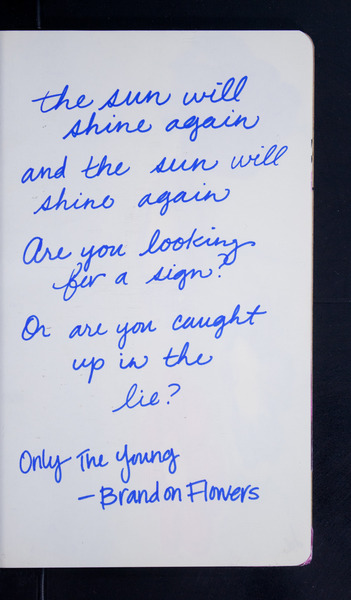 the sun will
shine again
and the sun will
shine again
Are you looking
for a sign?
Or are you caught
up in the
lie?
Only The Young
- Brandon Flowers